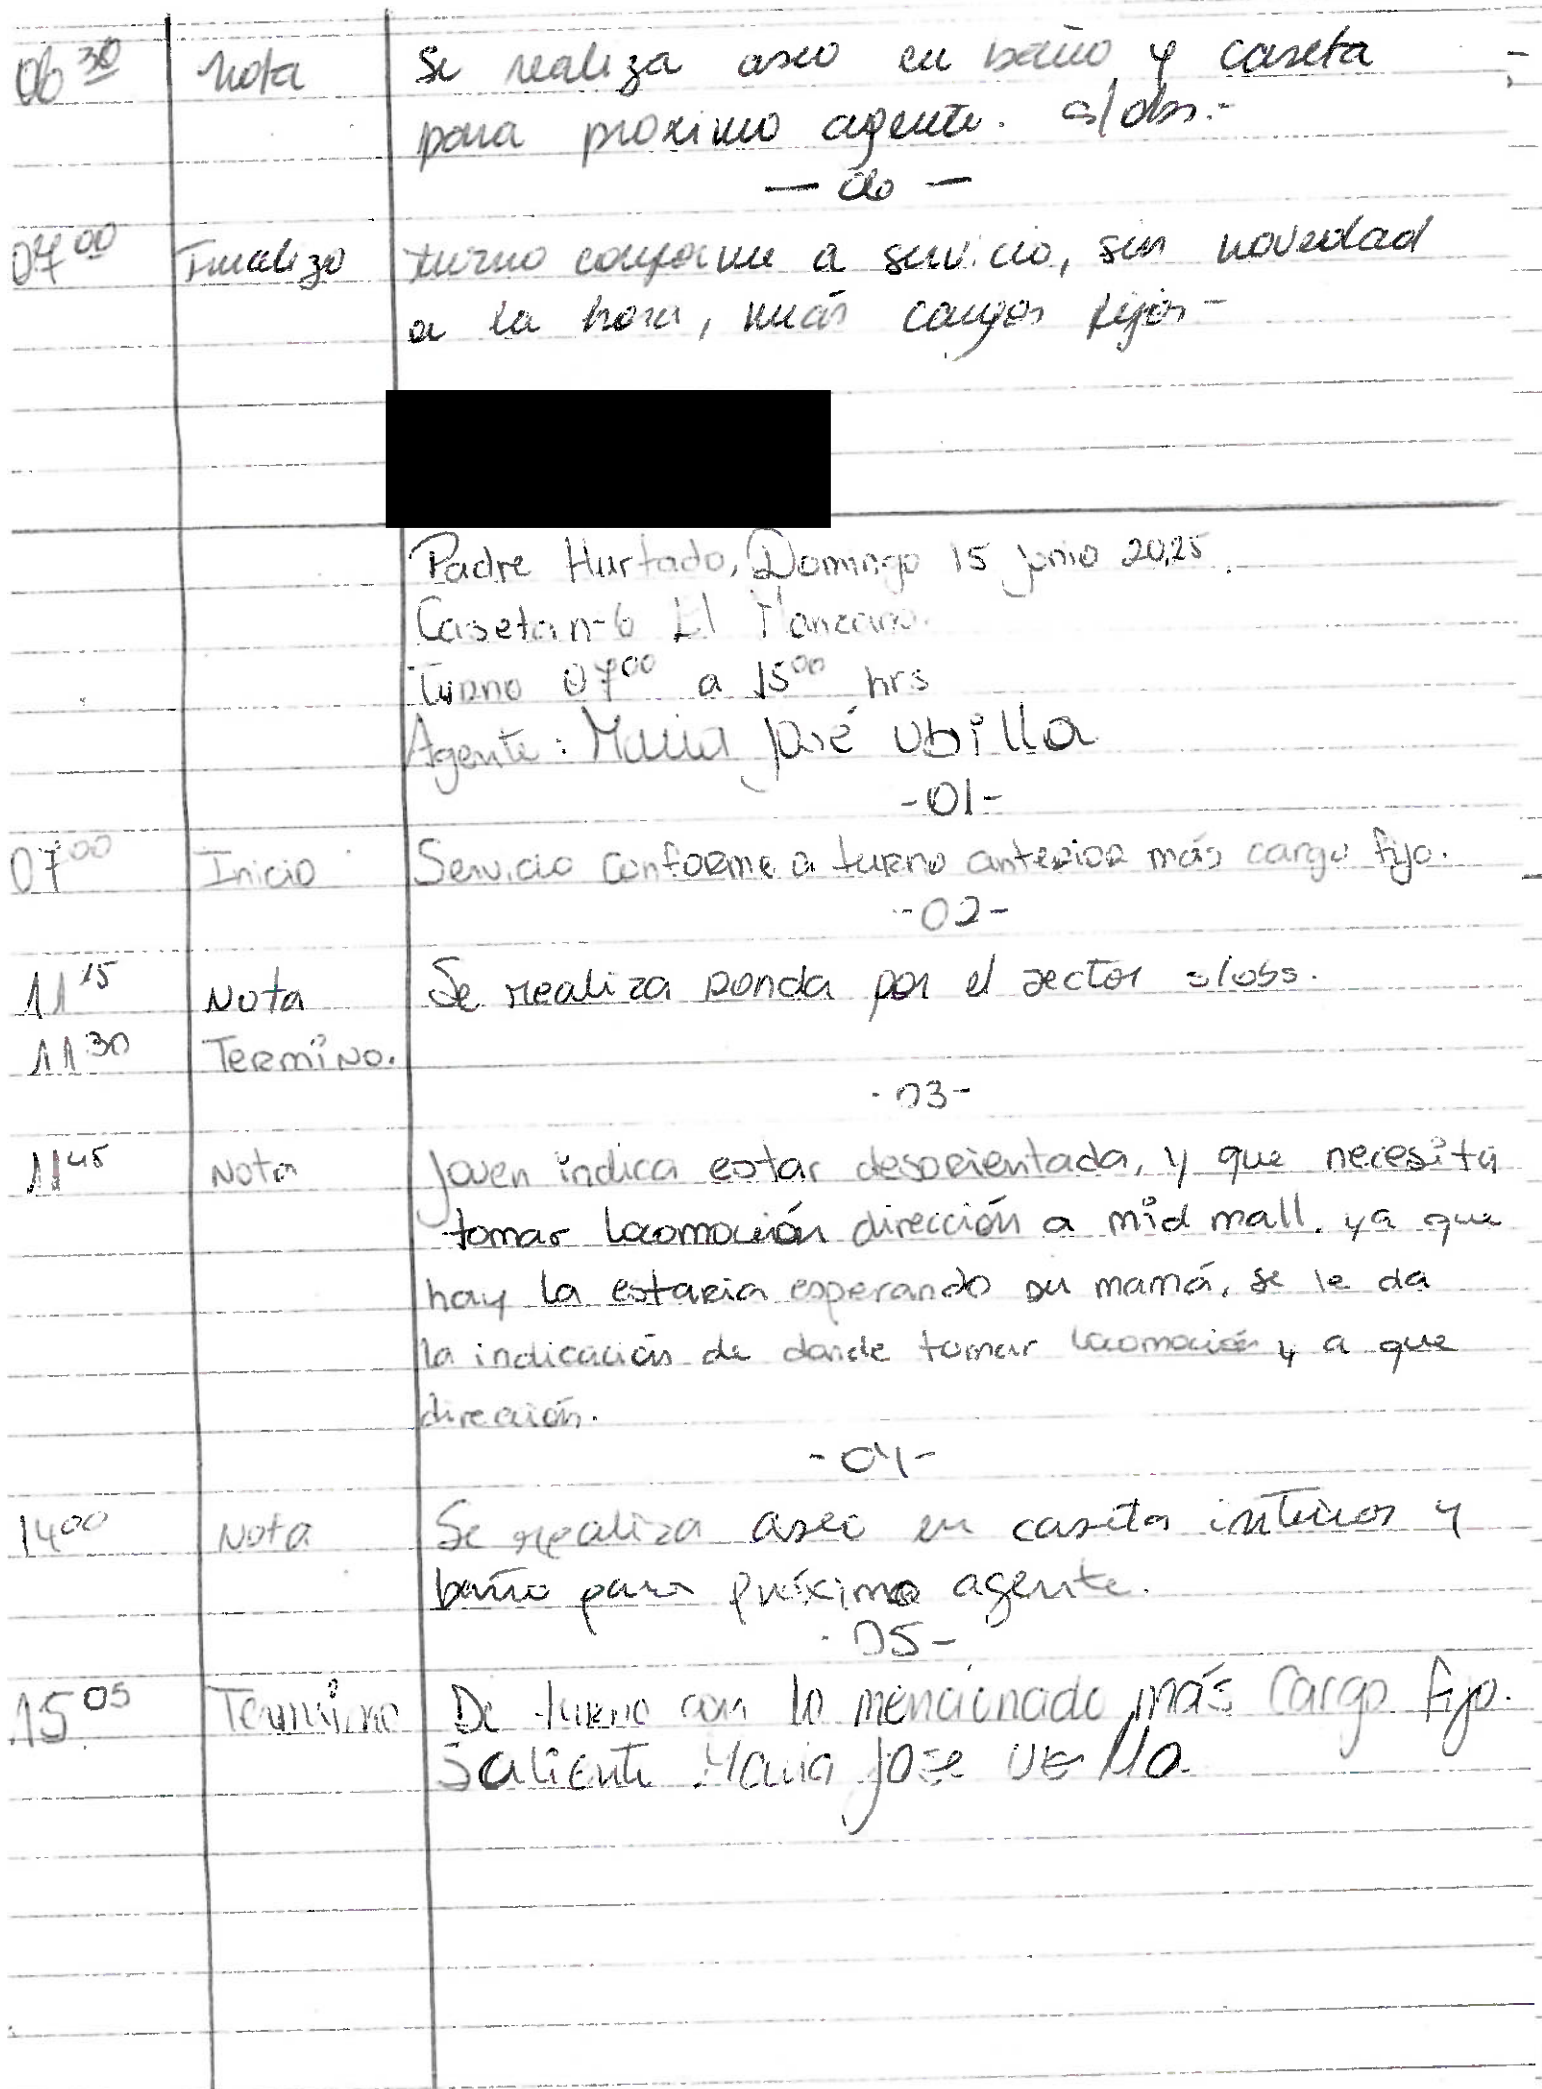 06 30 Nota Se realiza aseo en baño y caseta
para proximo agente. s/obs.-
07 00 Finalizo turno conforme a servicio, sin novedad
a la hora, más cargos fijos-
Padre Hurtado, Domingo 15 junio 2025.
Caseta n-6 El Manzano.
Turno 07 00 a 15 00 hrs
Agente: Maria José Ubilla
-01-
07 00 Inicio Servicio conforme a turno anterior más cargo fijo.
-02-
11 15 Nota Se realiza ronda por el sector s/obs.
11 30 Termino.
-03-
11 45 Nota Joven indica estar desorientada, y que necesita
tomar locomoción dirección a mid mall. ya que
hay la estaria esperando su mamá, se le da
la indicación de donde tomar locomoción y a que
dirección.
-04-
14 00 Nota Se realiza aseo en caseta interior y
baño para próximo agente.
-05-
15 05 Termino De turno con lo mencionado más cargo fijo.
Saliente Maria Jose Ubilla